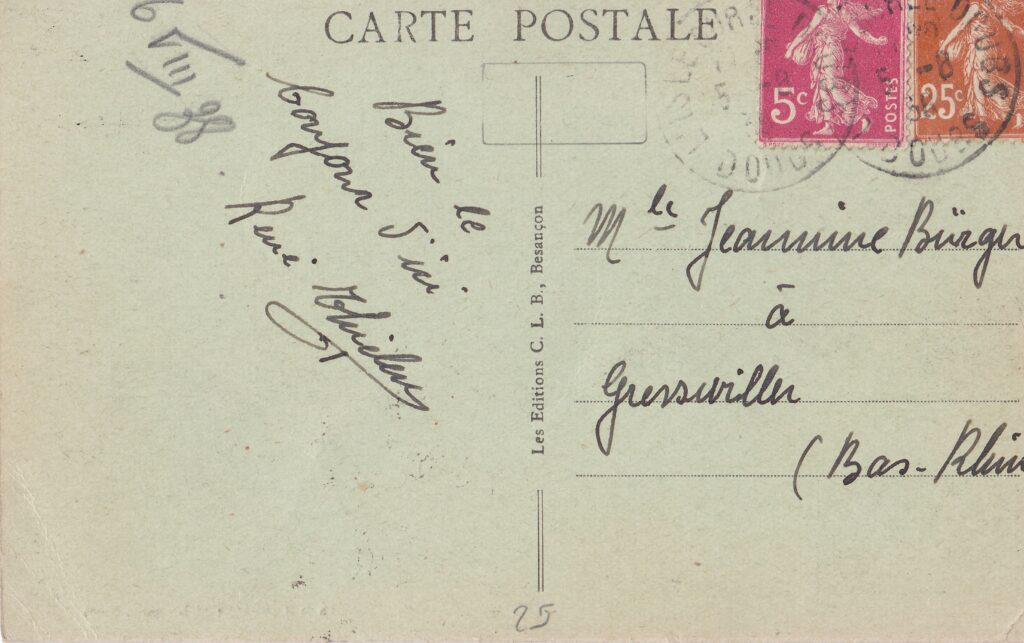 CARTE POSTALE
6 VIII 38
Bien le
bonjour d'ici
René
5c
POSTES
25c
DOUBS
DOUBS
Mlle Jeannine Bürger
à
Gresswiller
(Bas-Rhin
Les Editions C. L. B., Besançon
25